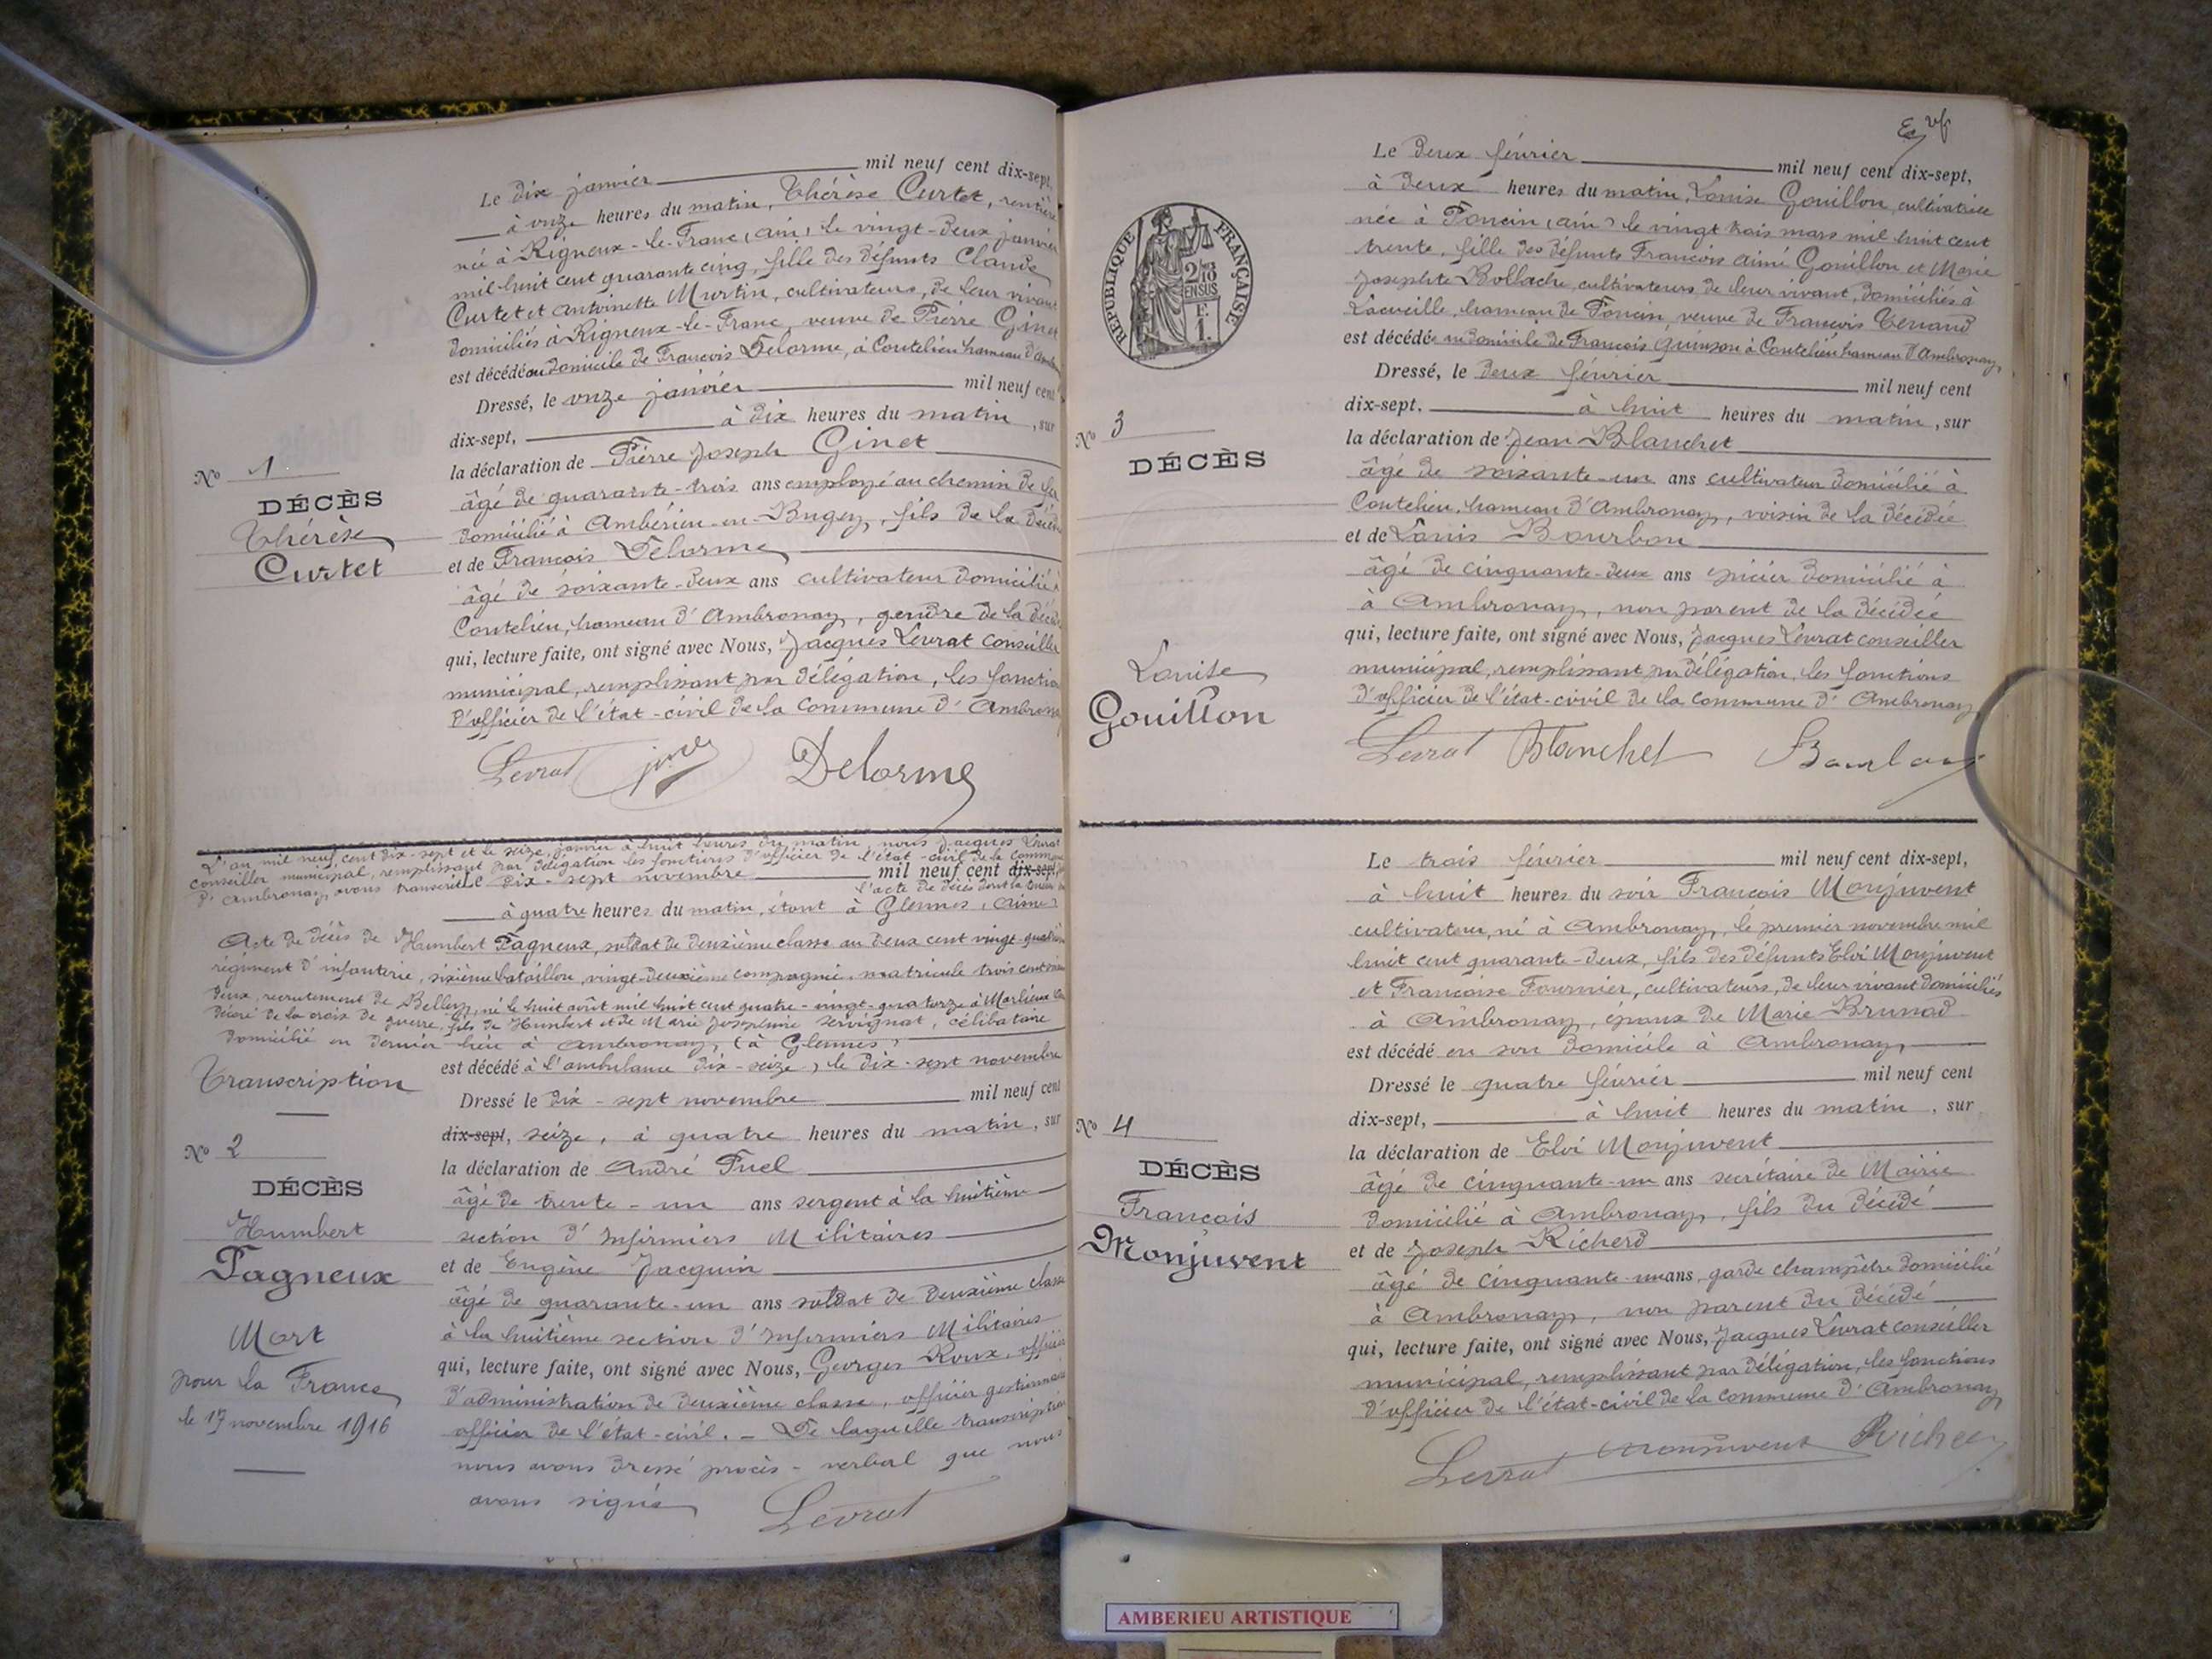 Le dix janvier mil neuf cent dix-sept,
à onze heures du matin, Thérèse Curtet, rentière
née à Rigneux-le-Franc (Ain) le vingt-deux janvier
mil huit cent quarante cinq, fille des défunts Claude
Curtet et Antoinette Murtin, cultivateurs, de leur vivant
domiciliés à Rigneux-le-Franc, veuve de Pierre Ginet
est décédée au domicile de François Delorme, à Coutelieu hameau d'Ambr
Dressé, le onze janvier mil neuf cent
dix-sept, à dix heures du matin, sur
la déclaration de Pierre Joseph Ginet
âgé de quarante-trois ans employé au chemin de fer
domicilié à Ambérieu-en-Bugey, fils de la décéd
et de François Delorme
âgé de soixante-deux ans cultivateur domicilié à
Coutelieu, hameau d'Ambronay, gendre de la décéd
qui, lecture faite, ont signé avec Nous, Jacques Levrat conseiller
municipal, remplissant par délégation, les fonctions
d'officier de l'état-civil de la commune d'Ambronay
Levrat Delorme
No 1
DÉCÈS
Thérèse
Curtet
L'an mil neuf cent dix-sept et le seize janvier à huit heures du matin, nous Jacques Levrat
conseiller municipal, remplissant par délégation les fonctions d'officier de l'état-civil de la commune
d'Ambronay, avons transcrit l'acte de décès dont la teneur
Le dix-sept novembre mil neuf cent dix-sept,
à quatre heures du matin, étant à Glennes (Aisne)
Acte de décès de Humbert Pagneux, soldat de deuxième classe au deux cent vingt-quatrième
régiment d'infanterie, sixième bataillon, vingt-deuxième compagnie, matricule trois cent
deux, recrutement de Belley, né le huit août mil huit cent quatre-vingt-quatorze à Marlieux
décoré de la croix de guerre, fils de Humbert et de Marie Joséphine Servignat, célibataire
domicilié en dernier lieu à Ambronay, (à Glennes)
est décédé à l'ambulance dix-seize, le dix-sept novembre
Dressé le dix-sept novembre mil neuf cent
dix-sept, seize, à quatre heures du matin, sur
la déclaration de André Puel
âgé de trente-un ans sergent à la huitième
section d'Infirmiers Militaires
et de Eugène Jacquin
âgé de quarante-un ans soldat de deuxième classe
à la huitième section d'Infirmiers Militaires
qui, lecture faite, ont signé avec Nous, Georges Roux, officier
d'administration de deuxième classe, officier gestionnaire
officier de l'état-civil. - De laquelle transcription
nous avons dressé procès-verbal que nous
avons signé Levrat
Transcription
No 2
DÉCÈS
Humbert
Pagneux
Mort
pour la France
le 17 novembre 1916
Le deux février mil neuf cent dix-sept,
à deux heures du matin, Louise Gouillon, cultivatrice
née à Poncin (Ain) le vingt trois mars mil huit cent
trente, fille des défunts François Aimé Gouillon et Marie
Josephte Bollache, cultivateurs de leur vivant, domiciliés à
hameau de Poncin, veuve de François Tenand
est décédée au domicile de François Quinson à Coutelieu hameau d'Ambronay,
Dressé, le deux février mil neuf cent
dix-sept, à huit heures du matin, sur
la déclaration de Jean Blanchet
âgé de soixante-un ans cultivateur domicilié à
Coutelieu, hameau d'Ambronay, voisin de la décédée
et de Louis Bourbon
âgé de cinquante-deux ans épicier domicilié à
à Ambronay, non parent de la décédée
qui, lecture faite, ont signé avec Nous, Jacques Levrat conseiller
municipal, remplissant par délégation, les fonctions
d'officier de l'état-civil de la commune d'Ambronay
Levrat Blanchet Bourbon
RÉPUBLIQUE FRANÇAISE
2/10
EN SUS
F.
1.
No 3
DÉCÈS
Louise
Gouillon
Le trois février mil neuf cent dix-sept,
à huit heures du soir François Monjuvent
cultivateur, né à Ambronay, le premier novembre mil
huit cent quarante-deux, fils des défunts Eloi Monjuvent
et Françoise Fournier, cultivateurs, de leur vivant domiciliés
à Ambronay, époux de Marie Brunod
est décédé en son domicile à Ambronay
Dressé le quatre février mil neuf cent
dix-sept, à huit heures du matin, sur
la déclaration de Eloi Monjuvent
âgé de cinquante-un ans secrétaire de Mairie
domicilié à Ambronay, fils du décédé
et de Joseph Richerd
âgé de cinquante-un ans, garde champêtre domicilié
à Ambronay, non parent du décédé
qui, lecture faite, ont signé avec Nous, Jacques Levrat conseiller
municipal, remplissant par délégation, les fonctions
d'officier de l'état-civil de la commune d'Ambronay
Levrat Monjuvent Richerd
No 4
DÉCÈS
François
Monjuvent
AMBERIEU ARTISTIQUE